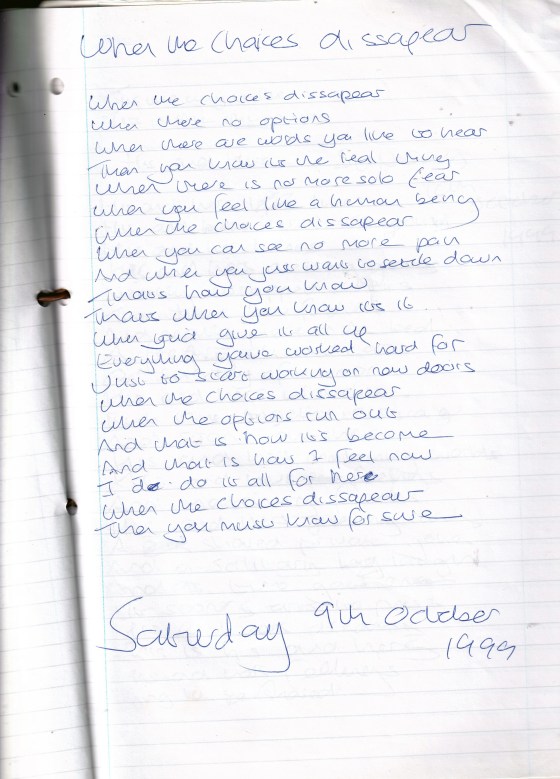 When the choices dissapear
When the choices dissapear
When there no options
When there are words you like to hear
Then you know its the real thing
When there is no more solo fear
When you feel like a human being
When the choices dissapear
When you can see no more pain
And when you just want to settle down
Thats how you know
Thats when you know its it
When you'd give it all up
Everything youve worked hard for
Just to start working on new doors
When the choices dissapear
When the options run out
And that is how it's become
And that is how I feel now
I do it all for her
When the choices dissapear
Then you must know for sure
Saturday 9th October
1999